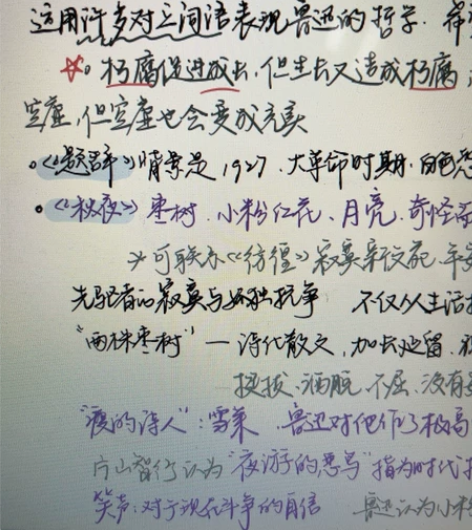 运用许多对立词语表现鲁迅的哲学.
☆。朽腐促进成长,但生长又造成朽腐
空虚,但空虚也会变成充实
。《题辞》背景是1927、大革命时期.白色恐
。《秋夜》枣树.小粉红花、月亮.奇怪而
可联系《彷徨》寂寞新文苑、平安
先驱者的寂寞与孤独抗争 不仅从生活
"两株枣树"—诗化散文,加长延留.
挺拔、洒脱、不屈、没有
"瘦的诗人":雪莱.鲁迅对他作了极高
片山智行认为"夜游的恶鸟"指为时代
笑声:对于现在斗争的自信 鲁迅认为小粉